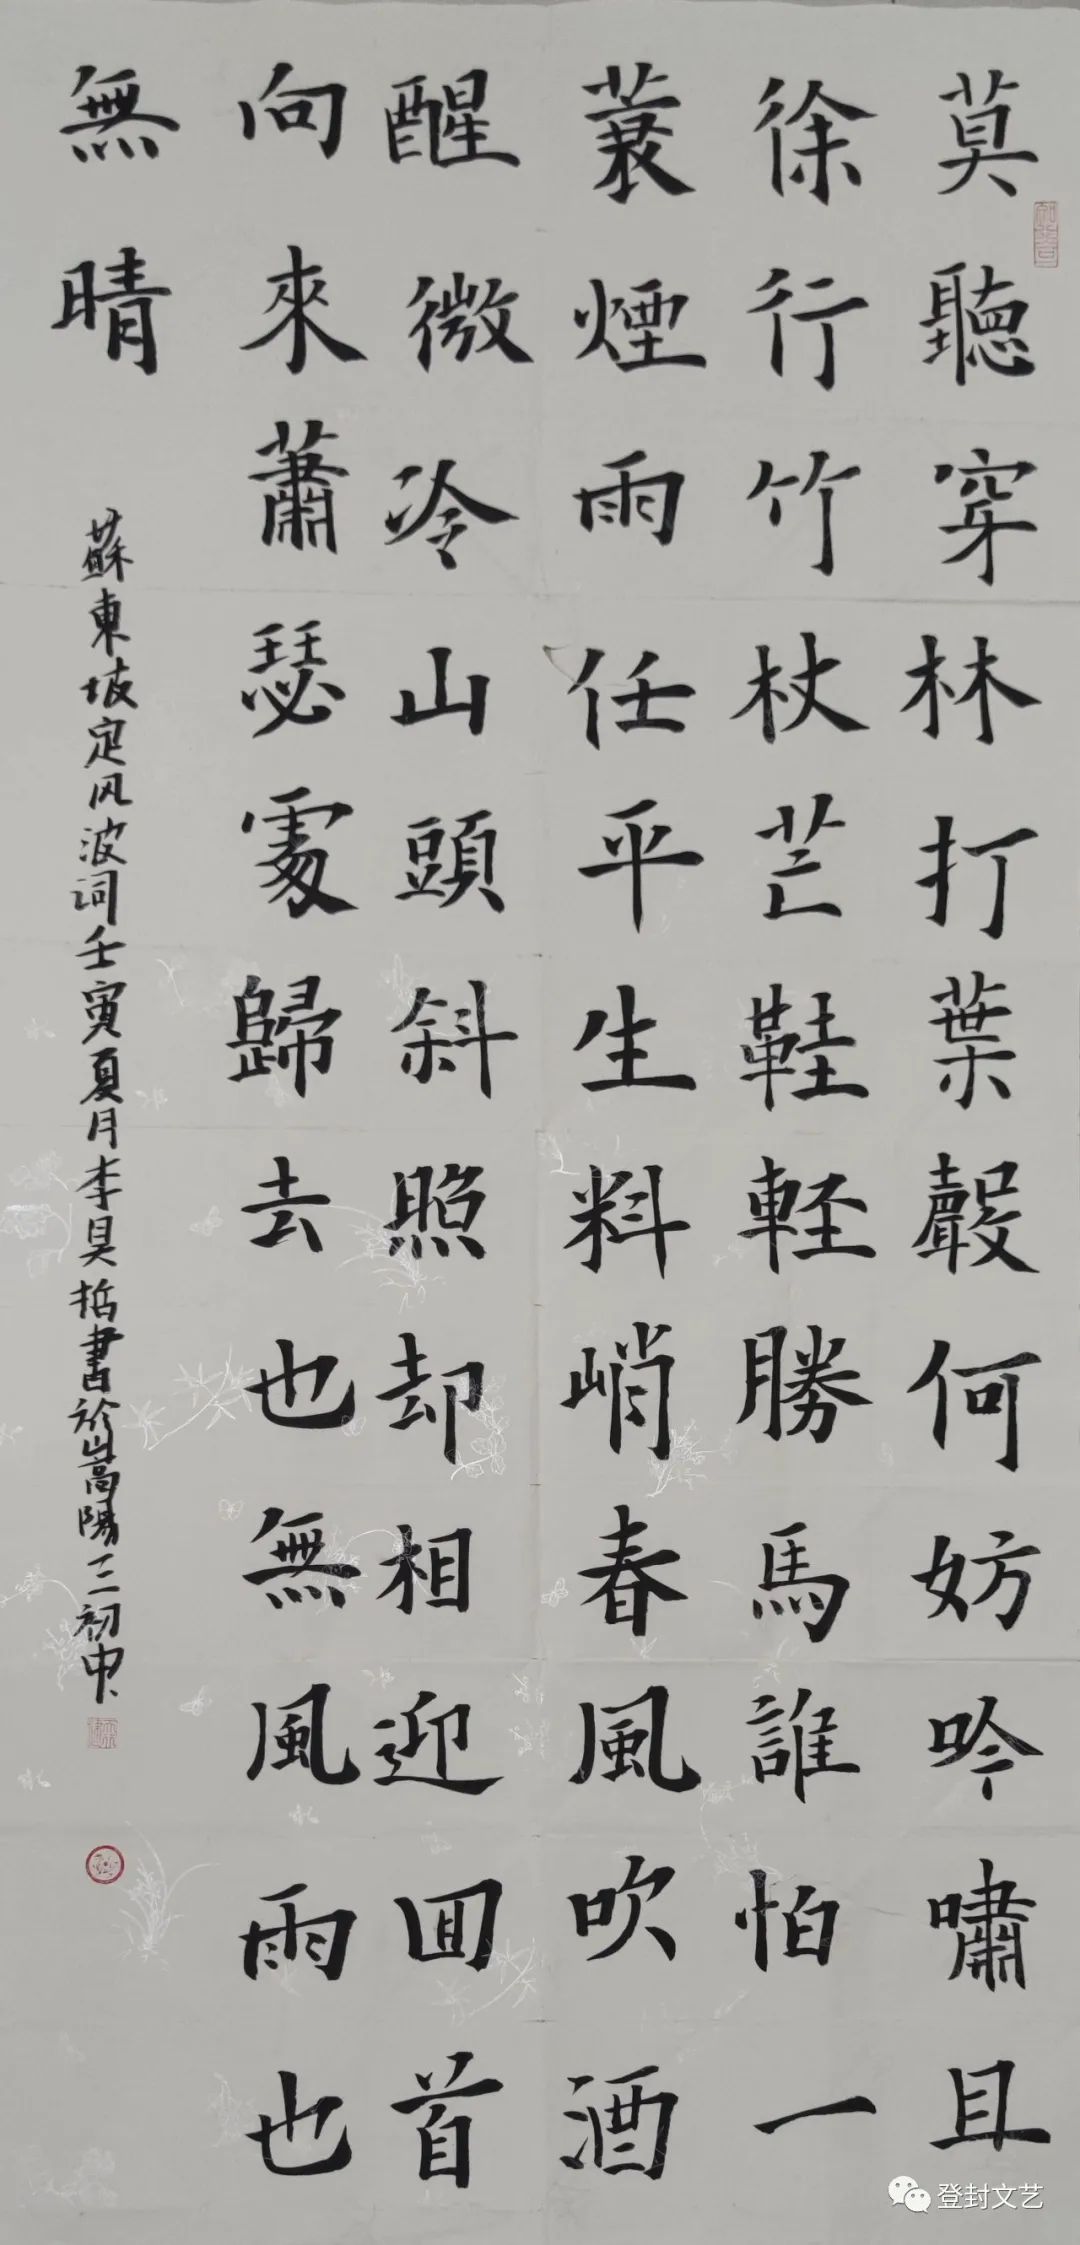 莫聽穿林打葉聲何妨吟嘯且
徐行竹杖芒鞋輕勝馬誰怕一
蓑煙雨任平生料峭春風吹酒
醒微冷山頭斜照却相迎回首
向來蕭瑟處歸去也無風雨也
無晴
蘇東坡定风波词壬寅夏月李昊哲書於嵩陽
登封文艺